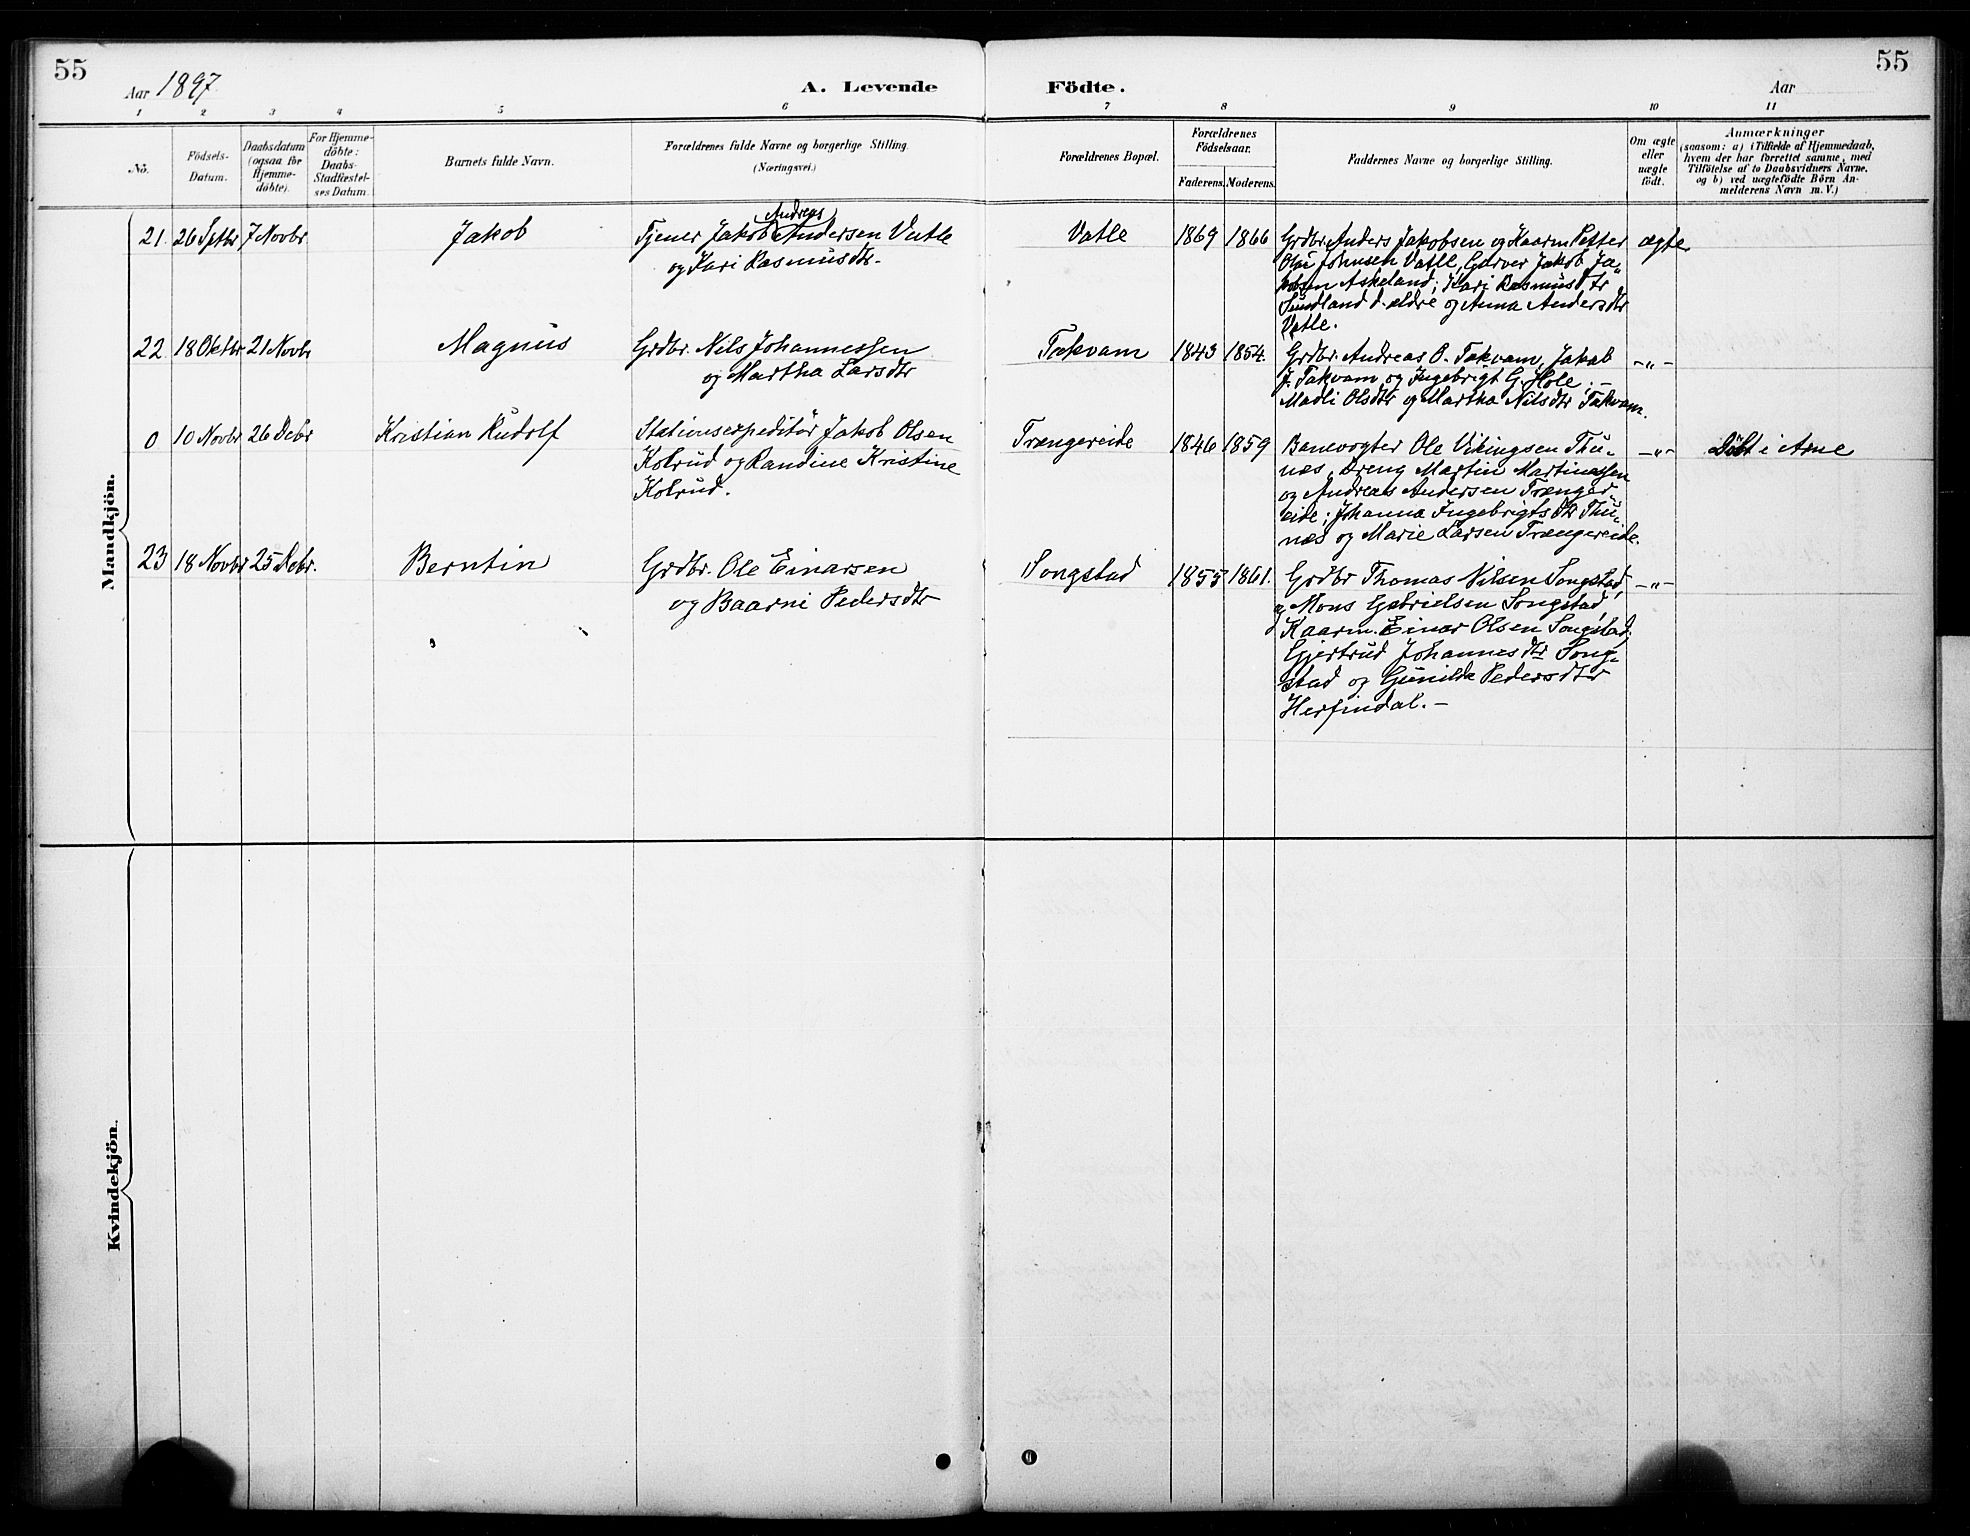 55
55
Aar 1897.
A. Levende
Födte.
Aar
1 2 3 4 5 6 7 8 9 10 11
No.
Födsels-
Datum.
Daabsdatum
(ogsaa for
Hjemme-
döbte).
For Hjemme-
döbte:
Daabs-
Stadfæstel-
ses Datum.
Barnets fulde Navn.
Forældrenes fulde Navne og borgerlige Stilling.
(Næringsvei.)
Forældrenes Bopæl.
Forældrenes
Födselsaar.
Faderens.
Moderens.
Faddernes Navne og borgerlige Stilling.
Om ægte
eller
uægte
födt.
Anmærkninger
(saasom: a) i Tilfælde af Hjemmedaab,
hvem der har forrettet samme, med
Tilföielse af to Daabsvidners Navne,
og b) ved uægtefödte Börn An-
melderens Navn m. V.)
Mandkjön.
21. 26 Septbr 7 Novbr
Jakob
Andreas
Tjener Jakob Andersen Vatle
og Kari Rasmusdtr.
Vatle
1869 1866
Grdbr. Anders Jakobsen og Kaarm. Petter
Olai Johnsen Vatle, Garver Jakob Ja-
kobsen Askeland; Kari Rasmusdtr
Sundland d. ældre og Anna Andersdtr
Vatle.
ægte
22. 18 Oktbr 21 Novbr
Magnus
Grdbr. Nils Johannessen
og Martha Larsdtr
Takvam
1843 1854.
Grdbr. Andreas O. Takvam, Jakob
J. Takvam og Ingebrigt G. Hole; -
Madli Olsdtr og Martha Nilsdtr Takvam.
-"-
0 10 Novbr 26 Debr
Kristian Rudolf
Stationsexpeditör Jakob Olsen
Kolrud og Randine Kristine
Kolrud.
Trængereide
1846 1859
Banevogter Ole Vikingsen Thu-
næs, Dreng Martin Martinessen
og Andreas Andersen Trænger-
eide; Johanna Ingebrigtsdtr Thu-
næs og Marie Larsen Trængereide.
-"-
Döbt i Arne
23 18 Novbr 25 Debr.
Berntin
Grdbr. Ole Einarsen
og Baarni Pedersdtr
Songstad
1855 1861.
Grdbr Thomas Nilsen Songstad,
og Mons Gabrielsen Songstad,
Kaarm. Einar Olsen Songstad;
Gjertrud Johannesdtr Song-
stad og Gunilda Pedersdtr
Herfindal. -
-"-
Kvindekjön.